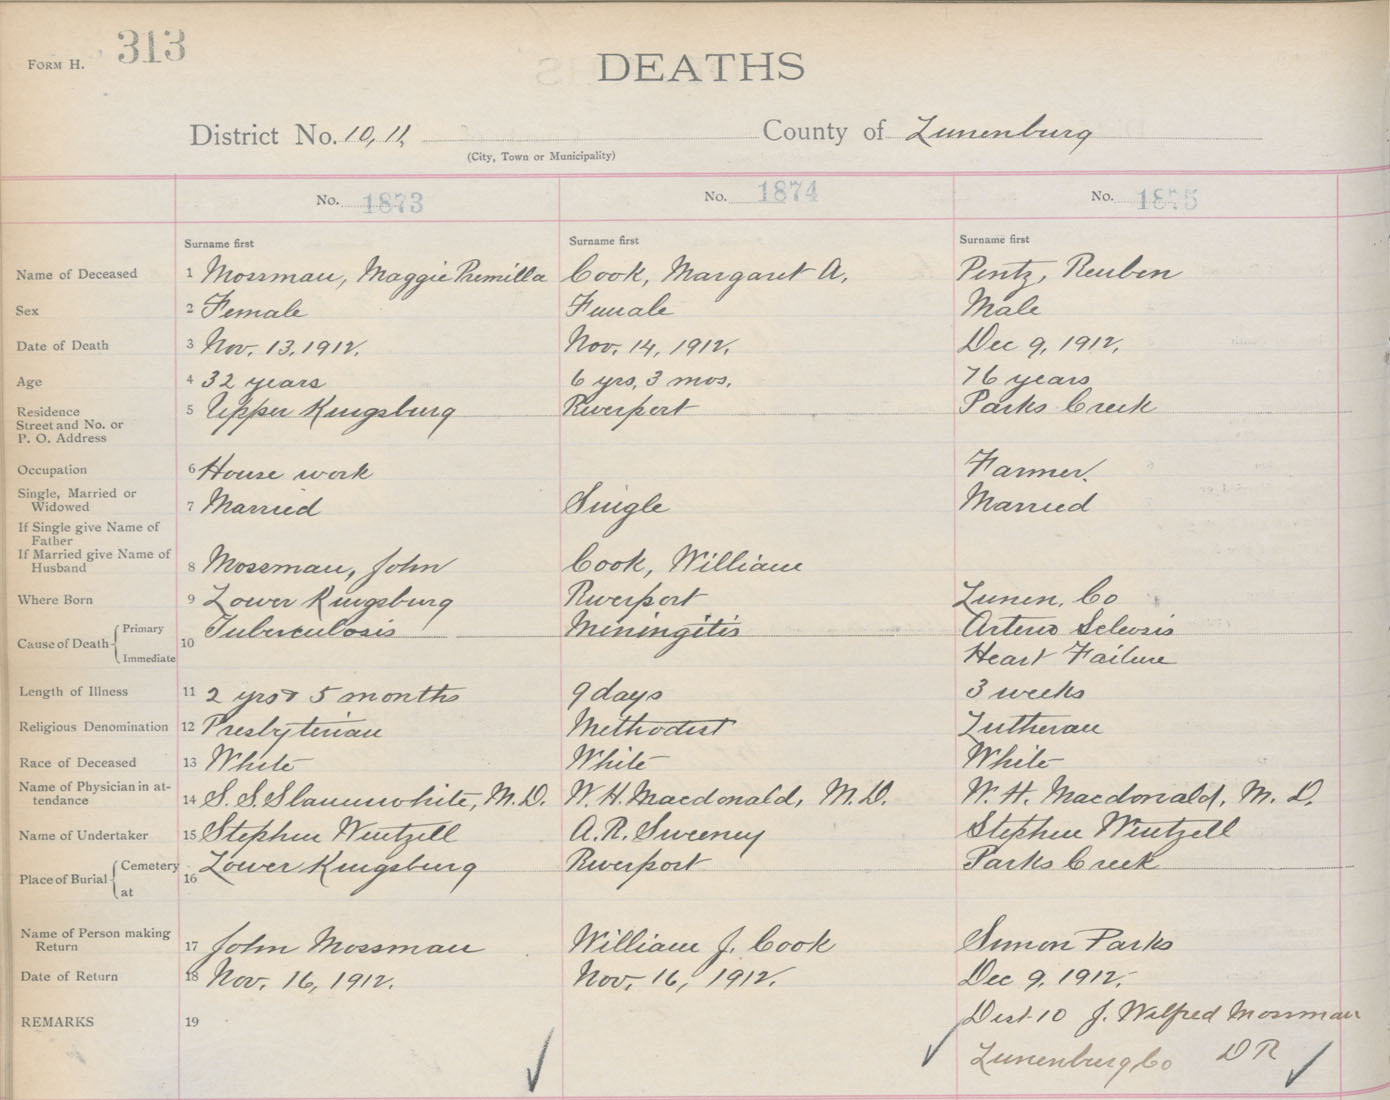 FORM H. 313
DEATHS
District No. 10, 11, County of Lunenburg
(City, Town or Municipality)
No. 1873 No. 1874 No. 1875
Surname first Surname first Surname first
Name of Deceased 1 Mossman, Maggie Premilla Cook, Margaret A. Pentz, Reuben
Sex 2 Female Female Male
Date of Death 3 Nov. 13, 1912. Nov. 14, 1912. Dec 9, 1912.
Age 4 32 years 6 yrs, 3 mos. 76 years
Residence 5 Upper Kingsburg Riverport Parks Creek
Street and No. or
P. O. Address
Occupation 6 House work Farmer.
Single, Married or
Widowed 7 Married Single Married
If Single give Name of
Father
If Married give Name of
Husband 8 Mossman, John Cook, William
Where Born 9 Lower Kingsburg Riverport Lunen. Co
Cause of Death Primary 10 Tuberculosis Meningitis Arterio Sclerosis
Immediate Heart Failure
Length of Illness 11 2 yrs & 5 months 9 days 3 weeks
Religious Denomination 12 Presbyterian Methodist Lutheran
Race of Deceased 13 White White White
Name of Physician in at-
tendance 14 S. S. Slaunwhite, M.D. W. H. Macdonald, M.D. W. H. Macdonald, M. D.
Name of Undertaker 15 Stephen Wentzell A. R. Sweeney Stephen Wentzell
Place of Burial Cemetery 16 Lower Kingsburg Riverport Parks Creek
at
Name of Person making
Return 17 John Mossman William J. Cook Simon Parks
Date of Return 18 Nov. 16, 1912. Nov. 16, 1912. Dec 9, 1912.
REMARKS 19 Dist 10 J. Wilfred Mossman
Lunenburg Co D R